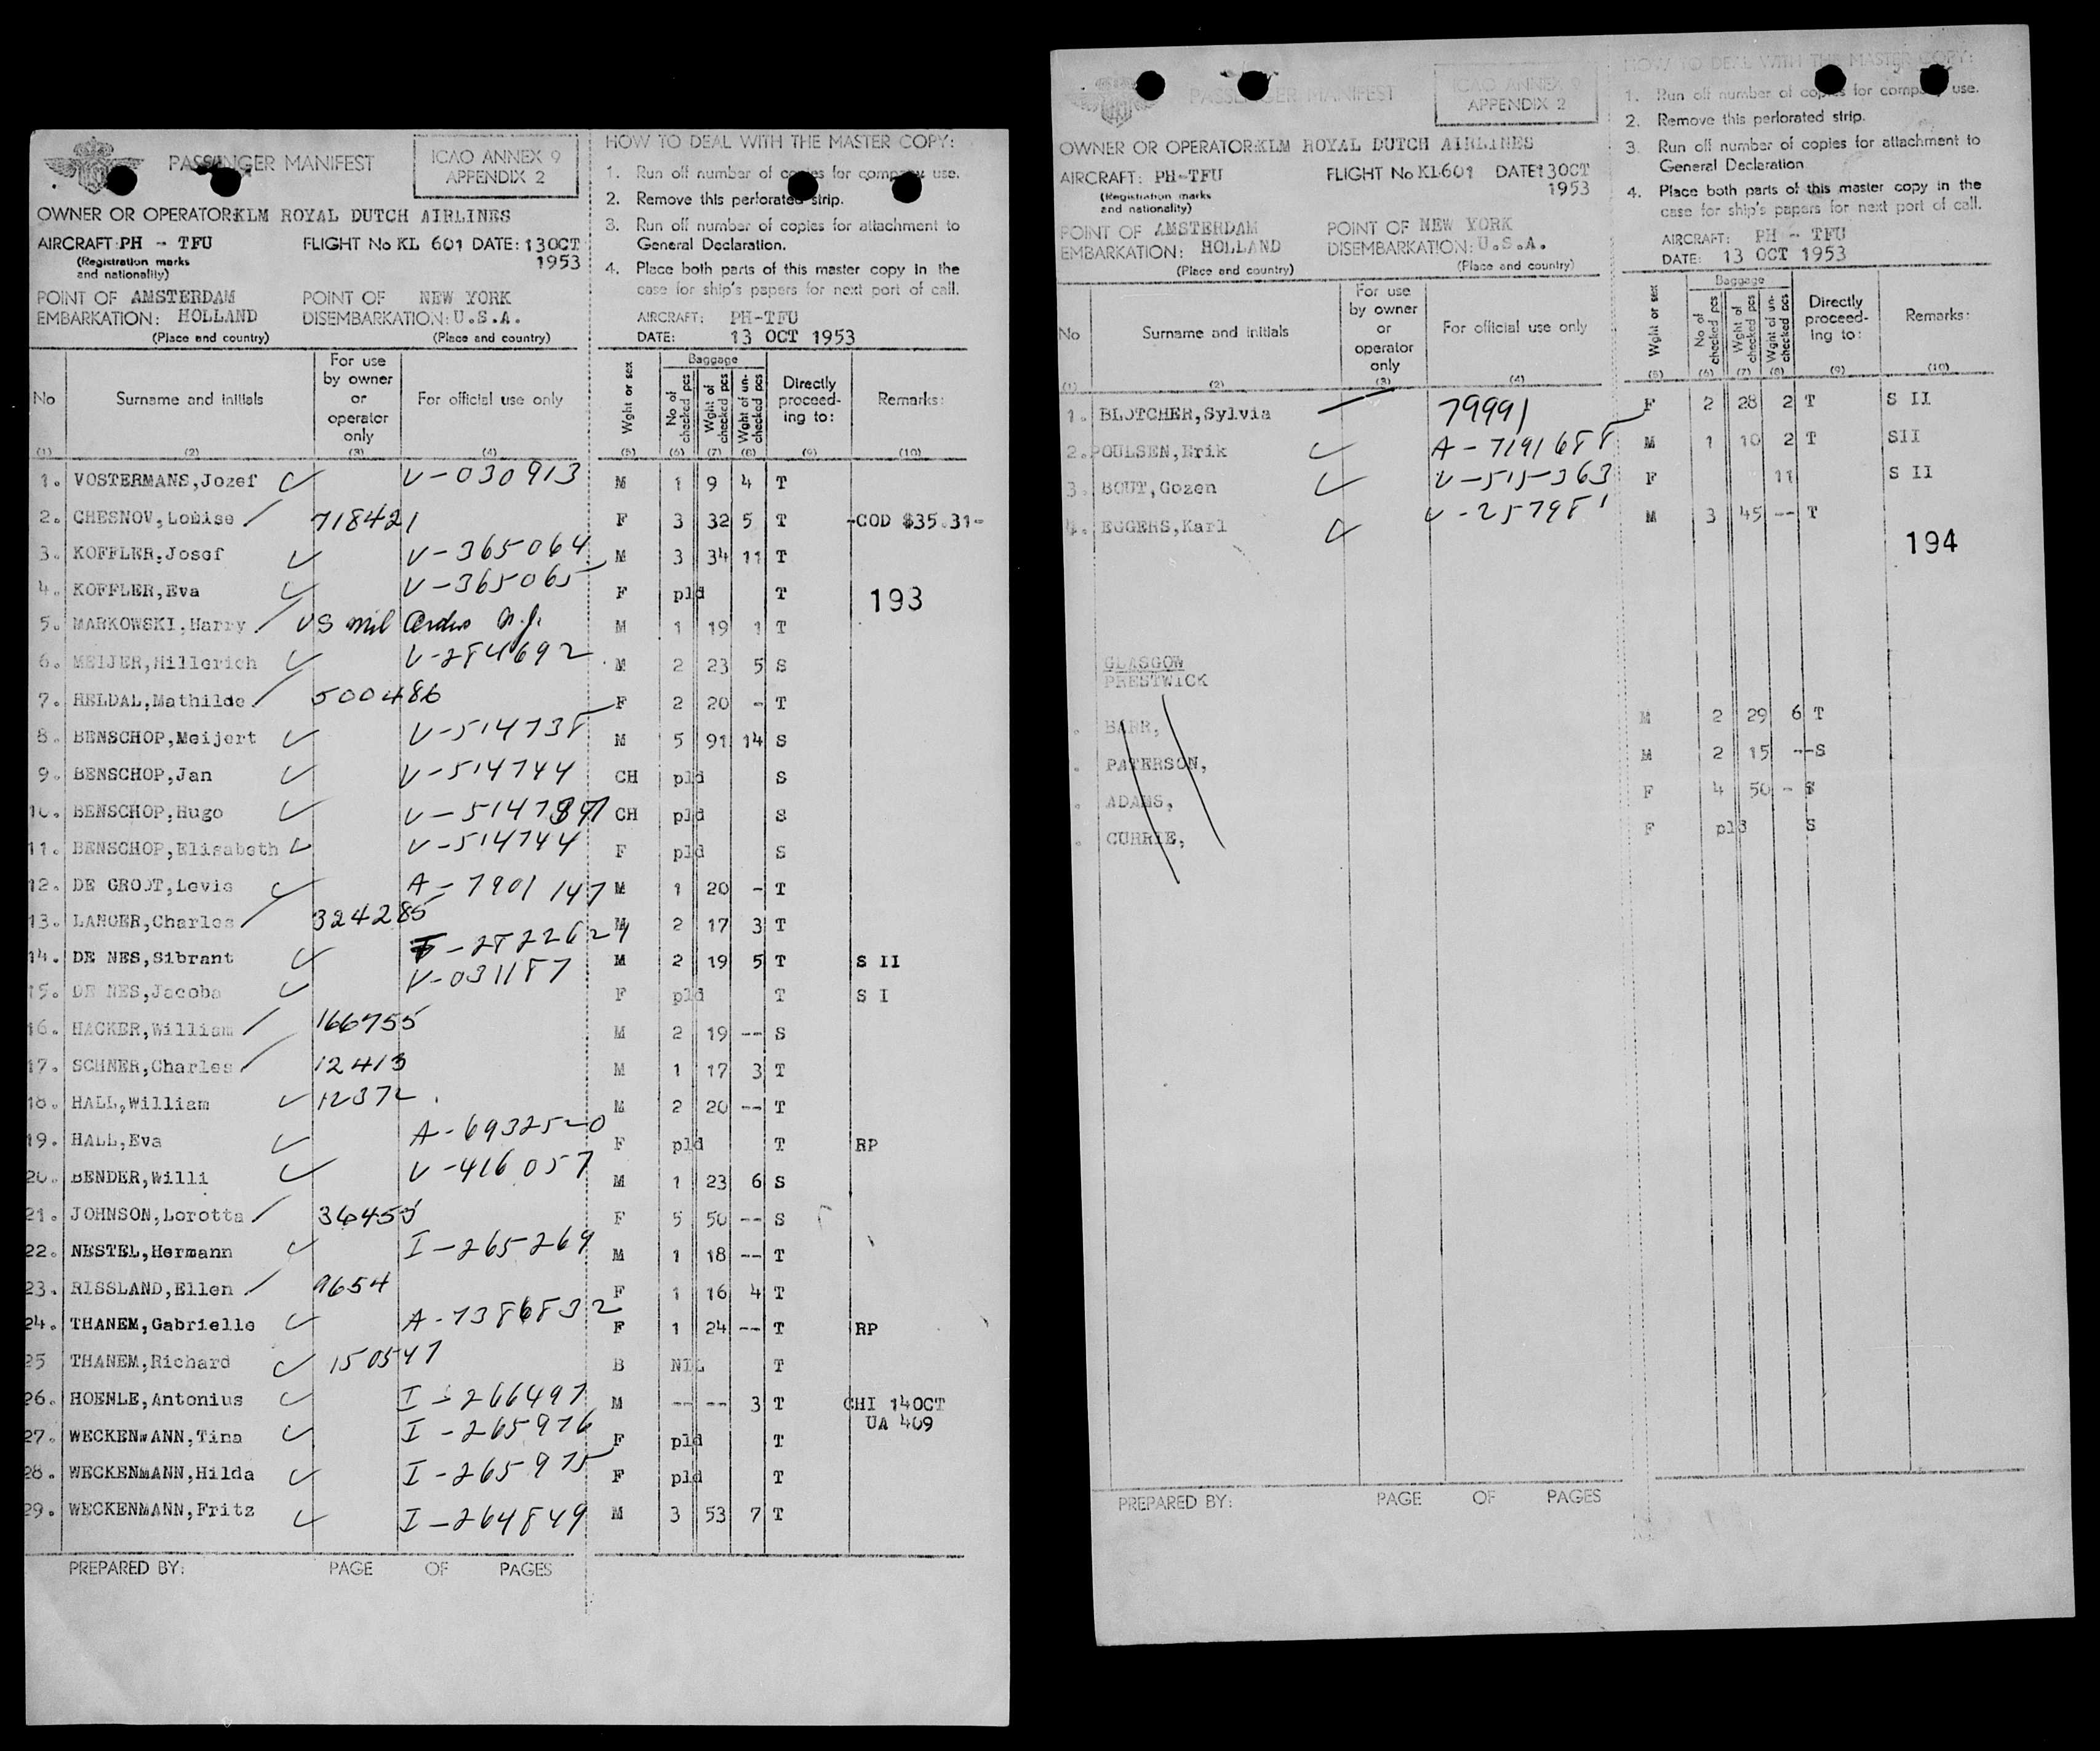 PASSENGER MANIFEST
ICAO ANNEX 9
APPENDIX 2
OWNER OR OPERATOR:KLM ROYAL DUTCH AIRLINES
AIRCRAFT:PH - TFU FLIGHT No KL 601 DATE:13OCT
(Registration marks and nationality) 1953
POINT OF AMSTERDAM POINT OF NEW YORK
EMBARKATION: HOLLAND DISEMBARKATION:U.S.A.
(Place and country) (Place and country)
HOW TO DEAL WITH THE MASTER COPY:
1. Run off number of copies for company use.
2. Remove this perforated strip.
3. Run off number of copies for attachment to
General Declaration.
4. Place both parts of this master copy in the
case for ship's papers for next port of call.
AIRCRAFT: PH-TFU
DATE: 13 OCT 1953
No Surname and initials For use by owner or operator only For official use only Wght or sex Baggage No of checked pcs Wght of checked pcs Wght of un-checked pcs Directly proceed-ing to: Remarks:
(1) (2) (3) (4) (5) (6) (7) (8) (9) (10)
1. VOSTERMANS,Jozef V-030913 M 1 9 4 T
2. CHESNOV,Louise 718421 F 3 32 5 T -COD $35.31-
3. KOFFLER,Josef V-365064 M 3 34 11 T
4. KOFFLER,Eva V-365065 F pld T
193
5. MARKOWSKI,Harry US mil M 1 19 1 T
6. MEIJER,Hillerich V-284692 M 2 23 5 S
7. HELDAL,Mathilde 500486 F 2 20 - T
8. BENSCHOP,Meijert V-514738 M 5 91 14 S
9. BENSCHOP,Jan V-514744 CH pld S
10. BENSCHOP,Hugo CH pld S
11. BENSCHOP,Elisabeth V-514744 F pld S
12. DE GROOT,Levis A-7901147 M 1 20 - T
13. LANGER,Charles 324285 M 2 17 3 T
14. DE NES,Sibrant M 2 19 5 T S II
15. DE NES,Jacoba V-031187 F pld T S I
16. HACKER,William 166755 M 2 19 -- S
17. SCHNER,Charles 12413 M 1 17 3 T
18. HALL,William 12372 M 2 20 -- T
19. HALL,Eva A-6932520 F pld T RP
20. BENDER,Willi V-416057 M 1 23 6 S
21. JOHNSON,Lorotta 36455 F 5 50 -- S
22. NESTEL,Hermann I-265269 M 1 18 -- T
23. RISSLAND,Ellen 9654 F 1 16 4 T
24. THANEM,Gabrielle A-7386832 F 1 24 -- T RP
25 THANEM,Richard 150547 B NIL T
26. HOENLE,Antonius I-266497 M -- -- 3 T CHI 14OCT
UA 409
27. WECKENWANN,Tina I-265976 F pld T
28. WECKENMANN,Hilda I-265975 F pld T
29. WECKENMANN,Fritz I-264849 M 3 53 7 T
PREPARED BY: PAGE OF PAGES
PASSENGER MANIFEST
ICAO ANNEX 9
APPENDIX 2
OWNER OR OPERATOR:KLM ROYAL DUTCH AIRLINES
AIRCRAFT: PH-TFU FLIGHT No KL601 DATE:13OCT
(Registration marks and nationality) 1953
POINT OF AMSTERDAM POINT OF NEW YORK
EMBARKATION: HOLLAND DISEMBARKATION:U.S.A.
(Place and country) (Place and country)
HOW TO DEAL WITH THE MASTER COPY:
1. Run off number of copies for company use.
2. Remove this perforated strip.
3. Run off number of copies for attachment to
General Declaration
4. Place both parts of this master copy in the
case for ship's papers for next port of call.
AIRCRAFT: PH - TFU
DATE: 13 OCT 1953
No Surname and initials For use by owner or operator only For official use only Wght or sex Baggage No of checked pcs Wght of checked pcs Wght of un-checked pcs Directly proceed-ing to: Remarks:
(1) (2) (3) (4) (5) (6) (7) (8) (9) (10)
1. BLOTCHER,Sylvia 79991 F 2 28 2 T S II
2. POULSEN,Erik A-7191688 M 1 10 2 T SII
3. BOUT,Gozen V-515363 F 11 S II
4. EGGERS,Karl V-257981 M 3 45 -- T
194
GLASGOW
PRESTWICK
. BARR, M 2 29 6 T
. PATERSON, M 2 15 --S
. ADAMS, F 4 50 - S
. CURRIE, F pl3 S
PREPARED BY: PAGE OF PAGES